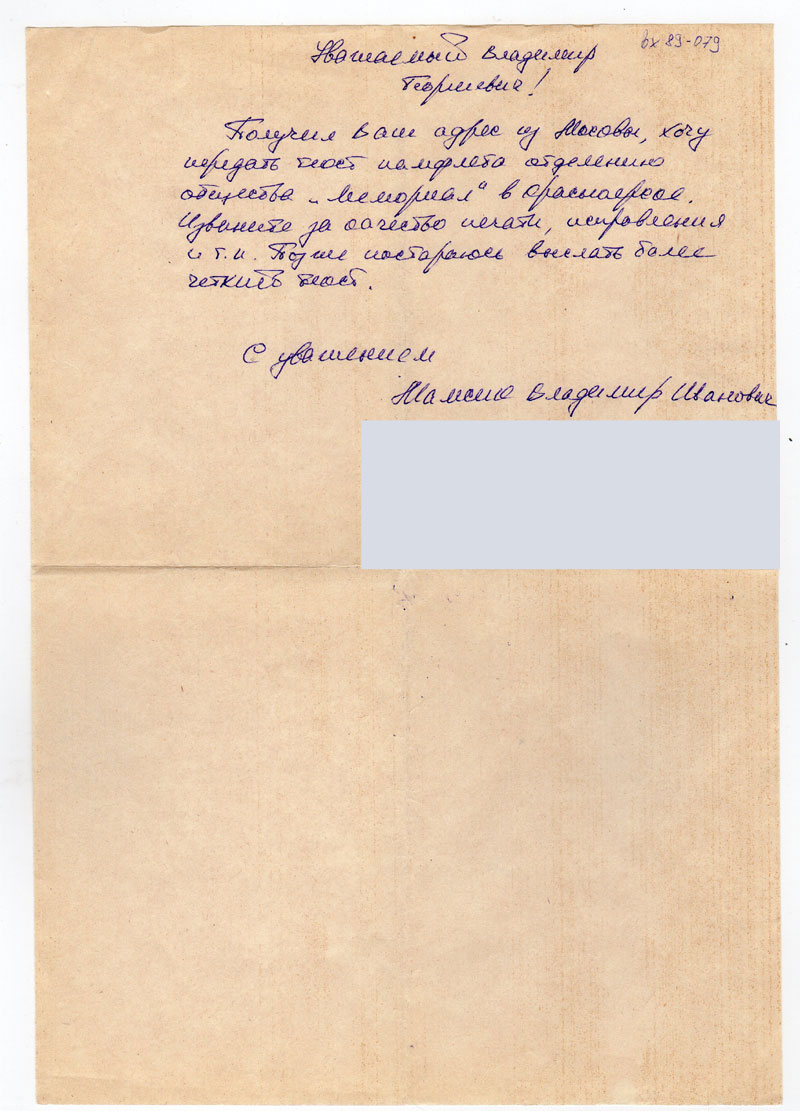 вх 89-079
Уважаемый Владимир
Георгиевич!
Получил Ваш адрес из Москвы, хочу
передать текст памфлета отделению
общества „Мемориал“ в Красноярске.
Извините за качество печати, исправления
и т.п. Позже постараюсь выслать более
четкий текст.
С уважением
Владимир Иванович